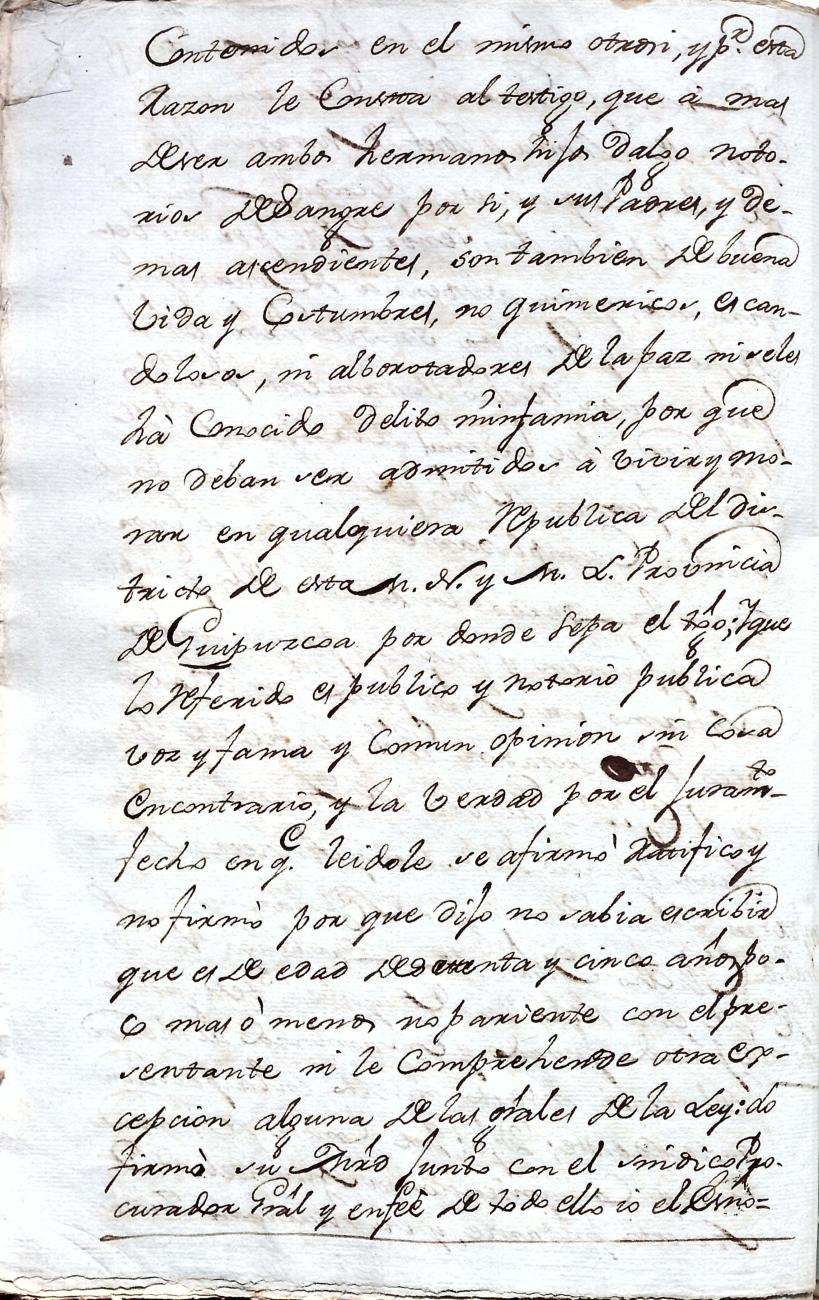 Contenidos en el mismo otrosi, y pr. esta
Razon le Consta al testigo, que à mas
de ser ambos hermanos hijos dalgo noto-
rios de Sangre por si, y sus Padres, y de-
mas ascendientes, son tambien de buena
Vida y Costumbres, no quimericos, escan-
dolosos, ni alborotadores de la paz ni seles
hà Conocido delito ni infamia, por que
no deban ser admitidos à vivir y mo-
rar en qualquiera Republica del dis-
tricto de esta M. N. y M. L. Provinicia
de Guipuzcoa por donde sepa el tgo; Y que
lo Referido es publico y notorio publica
voz y fama y Comun opinion sin Cosa
Encontrario, y la Verdad por el Juramto
fecho en q. leidole se afirmò Ratifico y
no firmò por que dijo no sabia escribir
que es de edad de y cinco años po-
co mas ò menos no pariente con el pre-
sentante ni le Comprehende otra ex-
cepcion alguna de las grales de la Ley: do
firmò su Mrd Junto con el sindico Pro-
curador Gral y enfeè de todo ello io el Esno=